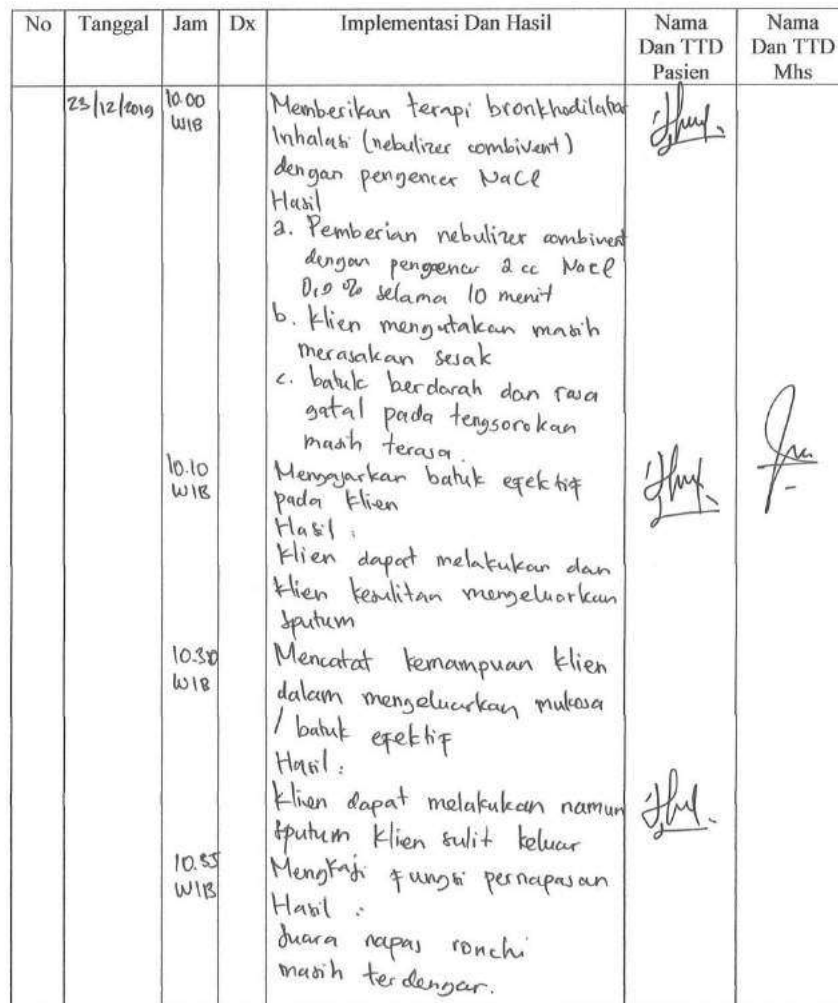 No Tanggal Jam Dx Implementasi Dan Hasil Nama Dan TTD Pasien Nama Dan TTD Mhs
23/12/2019 10.00 WIB Memberikan terapi bronkhodilator
Inhalasi (nebulizer combivent)
dengan pengencer NaCl
Hasil
a. Pemberian nebulizer combivent
dengan pengencer 2 cc NaCl
0,9 % selama 10 menit
b. Klien mengatakan masih
merasakan sesak
c. batuk berdarah dan rasa
gatal pada tengsorokan
masih terasa.
10.10 WIB Mengajarkan batuk efektif
pada klien
Hasil :
Klien dapat melakukan dan
klien kesulitan mengeluarkan
sputum
10.30 WIB Mencatat kemampuan klien
dalam mengeluarkan mukosa
/ batuk efektif
Hasil :
Klien dapat melakukan namun
sputum klien sulit keluar
10.35 WIB Mengkaji fungsi pernapasan
Hasil :
Suara napas ronchi
masih terdengar.